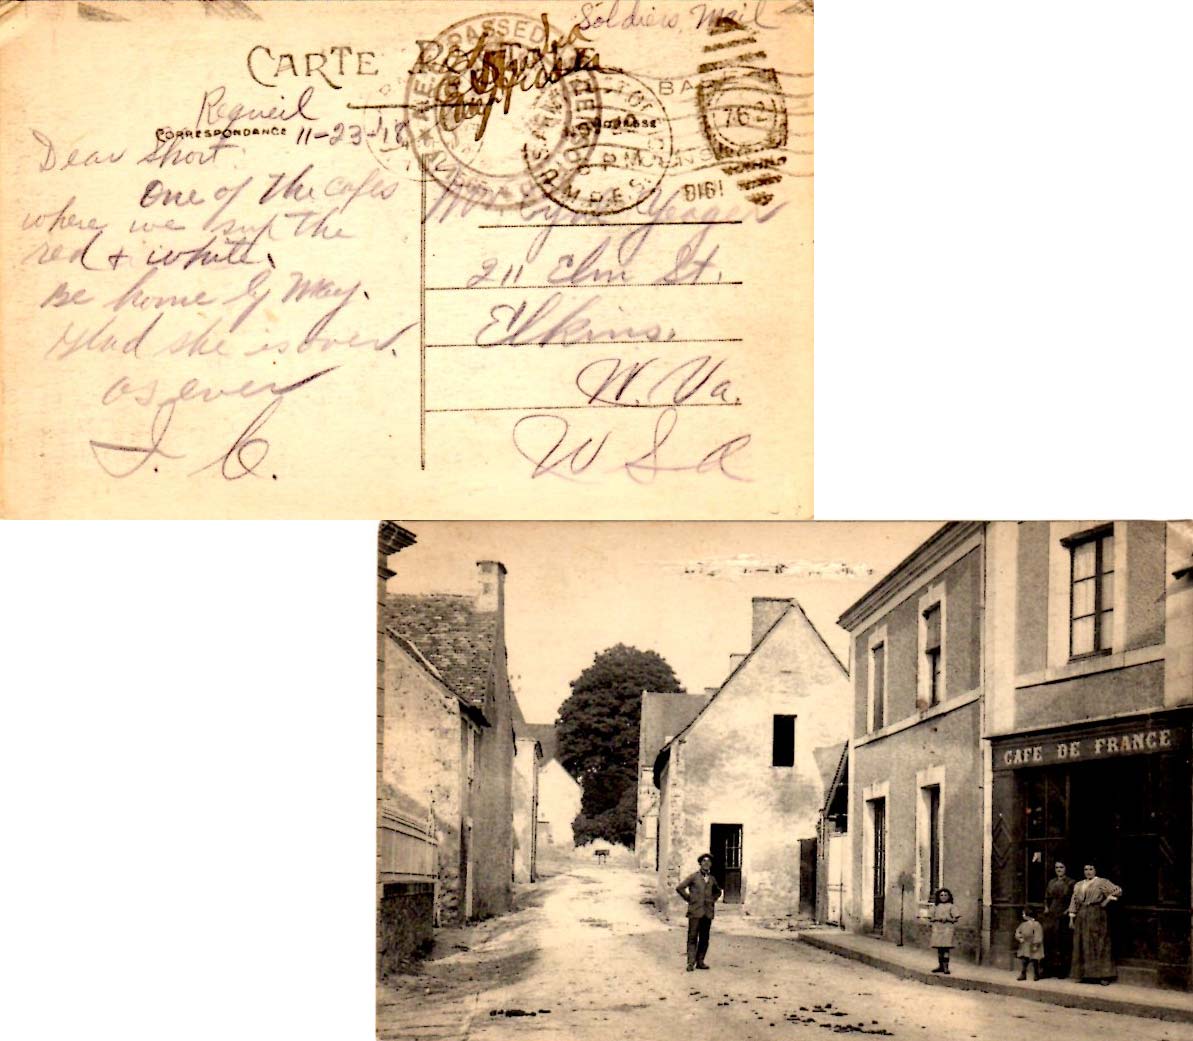 Soldiers Mail
CARTE POSTALE
Requeil
CORRESPONDANCE 11-23-18
Dear Short
One of the cafes
where we sup the
red & white.
Be home by May.
Glad she is over.
as ever
J. C.
PASSED
762
P.M.
M.P.E.S.
Yeager
211 Elm St.
Elkins.
W. Va.
U S A
CAFE DE FRANCE